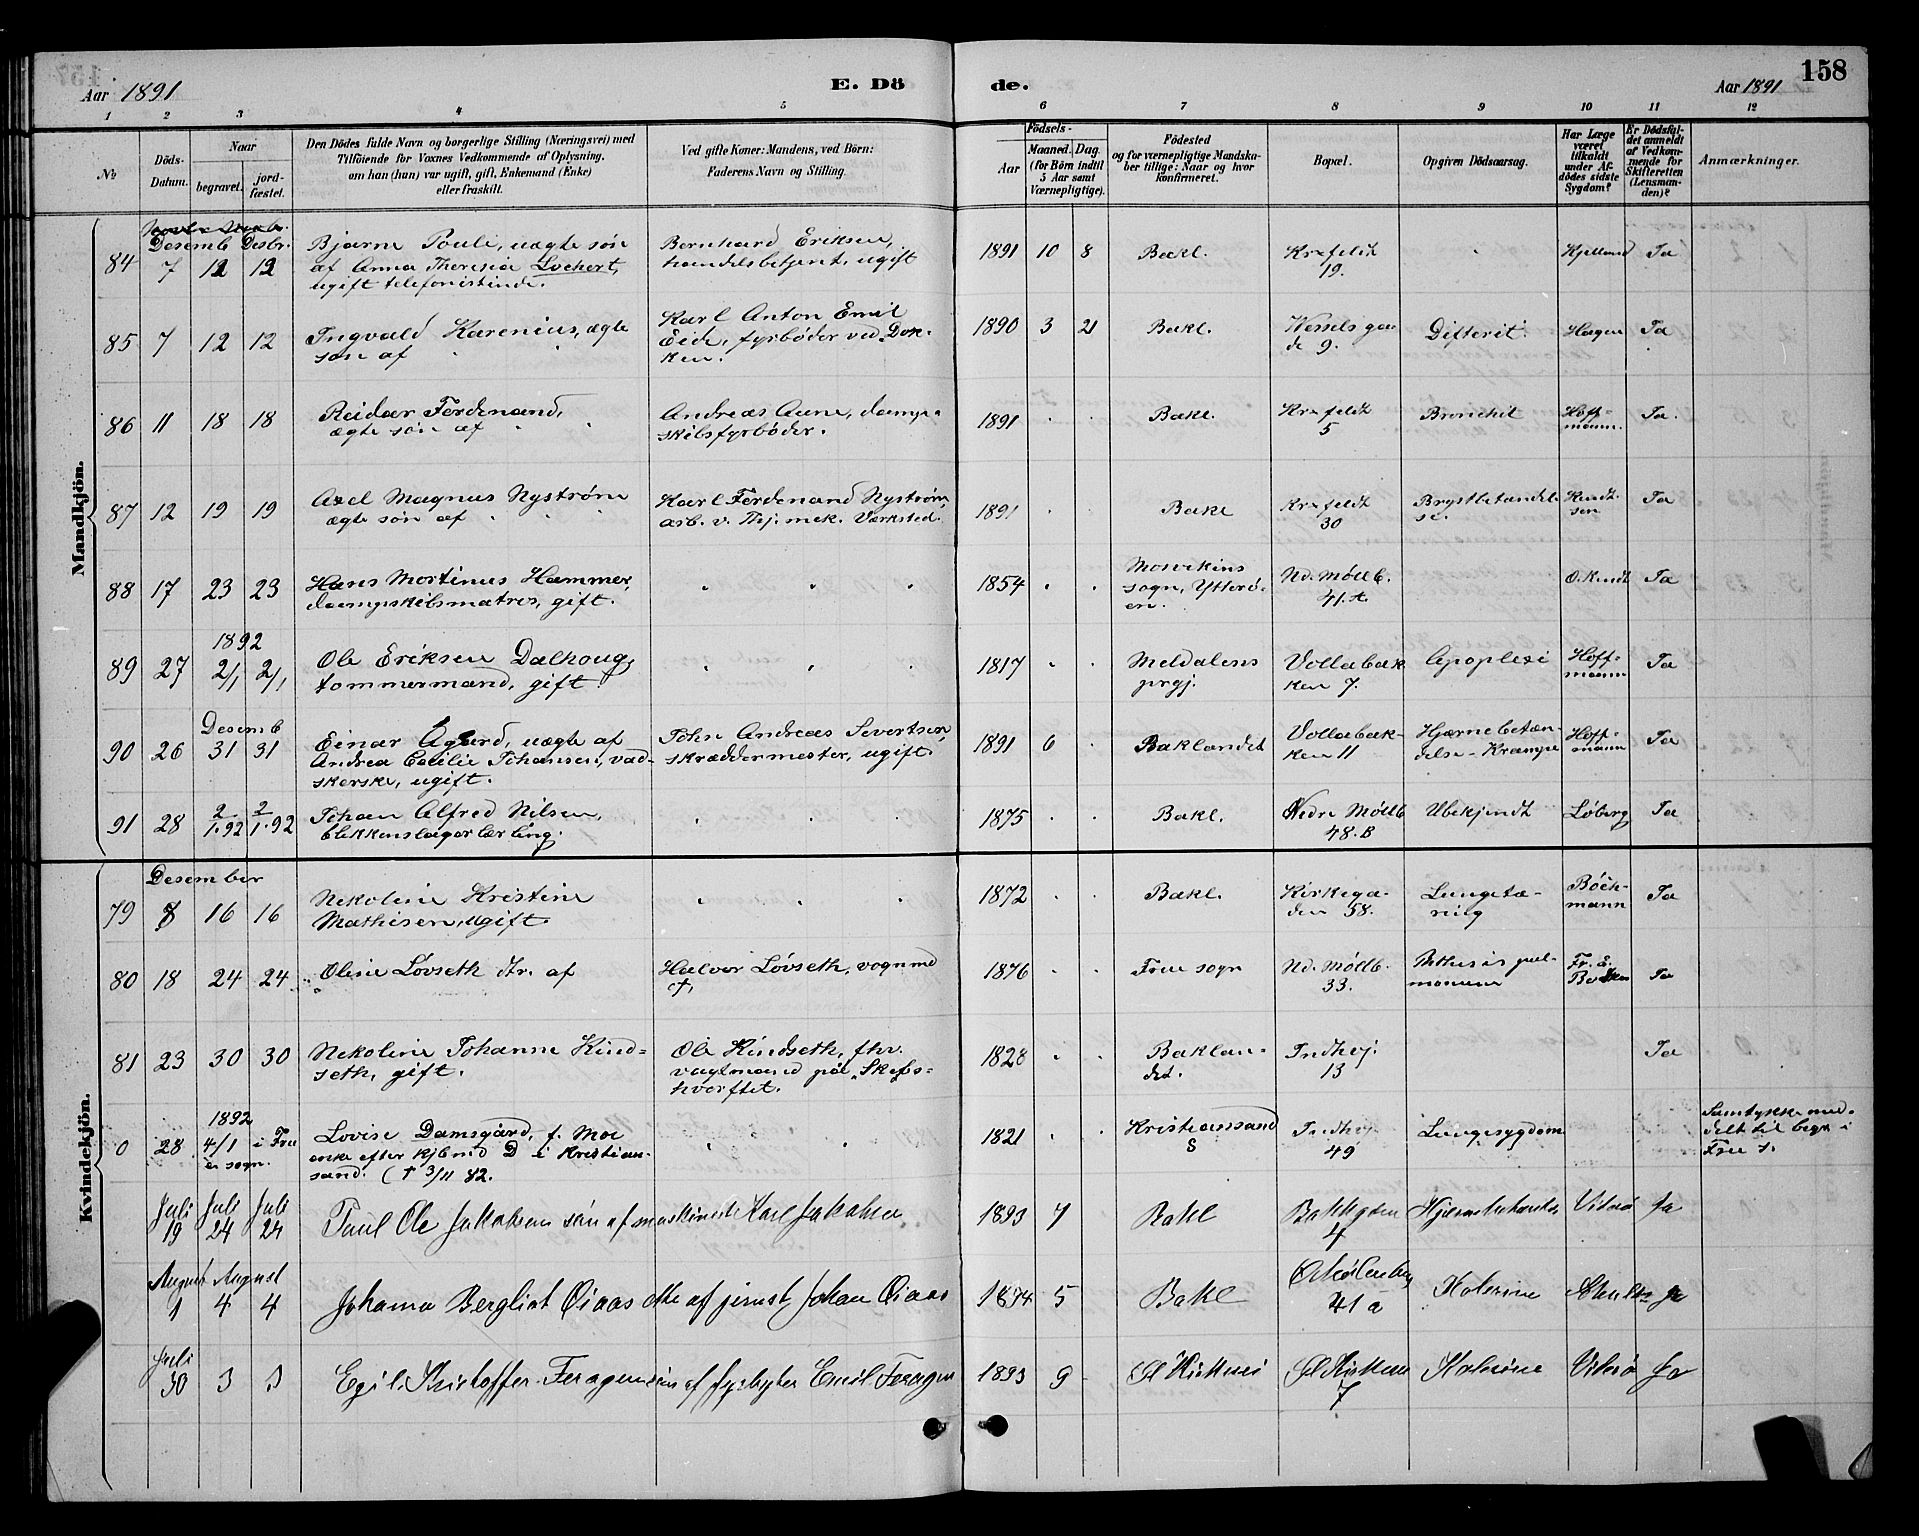 158
Aar 1891 E. Dö de. Aar 1891
1 2 3 4 5 6 7 8 9 10 11 12
No
Döds-Datum.
Naar begravet. jordfæstet.
Den Dödes fulde Navn og borgerlige Stilling (Næringsvei) med
Tilföiende for Voxnes Vedkommende af Oplysning,
om han (hun) var ugift, gift, Enkemand (Enke)
eller fraskilt.
Ved gifte Koner: Mandens, ved Börn:
Faderens Navn og Stilling.
Födsels-
Aar Maaned. Dag.
(for Börn indtil
5 Aar samt
Værnepligtige).
Födested
og for værnepligtige Mandska-
ber tillige: Naar og hvor
konfirmeret.
Bopæl.
Opgiven Dödsaarsag.
Har Læge
været
tilkaldt
under Af-
dödes sidste
Sygdom?
Er Dödsfal-
det anmeldt
af Vedkom-
mende for
Skifteretten
(Lensman-
den)?
Anmærkninger.
Mandkjön.
Desemb Desbr.
84 7 12 12 Bjarne Pouli, uægte søn
af Anna Theresia Lochert,
ugift telefonistinde.
Bernhard Eriksen,
handelsbetjent, ugift
1891 10 8 Bakl. Kr-feldt
19. Kjelland Ja
85 7 12 12 Ingvald Karenius, ægte
søn af
Karl Anton Emil
Eide, fyrbøder ved Dok-
ken.
1890 3 21 Bakl. Wessels ga-
de 9. Difterit Hagen Ja
86 11 18 18 Reidar Ferdenand,
ægte søn af
Andreas Aune, damp-
skibsfyrbøder.
1891 Bakl. Kr-feldt
5 Bronchit Hoff-
mann. Ja.
87 12 19 19 Axel Magnus Nystrøm
ægte søn af
Karl Ferdenand Nystrøm,
arb. v. Thj. mek. Værksted.
1891 Bakl Kr-feldt
30 Brystbetændel-
se. Kindt-
sen Ja
88 17 23 23 Hans Mortinus Hammer,
dampskibsmatros, gift.
1854 Mosvikens
sogn, Ytterø-
en. Nd. Møllb.
41. A. O. Kindt Ja
1892
89 27 2/1 2/1 Ole Eriksen Dalhoug,
tømmermand, gift.
1817 Meldalens
prgj. Vollabak-
ken 7. Apoplexi Hoff-
mann Ja
Desemb
90 26 31 31 Einar Agård, uægte af
Andrea Cecilie Johansen, vad-
skerske, ugift.
John Andreas Sivertsen,
skræddermester, ugift.
1891 6 Baklandet Vollabak-
ken 11 Hjærnebetæn-
delse - Krampe Hoff-
mann Ja
91 28 2/1.92 2/1.92 Johan Alfred Nilsen,
blikkenslagerlærling.
1875 Bakl. Nedre Møllb
48. B Ubekjendt Løberg Ja
Kvindekjön.
Desember
79 8 16 16 Nekoline Kristine
Mathisen, ugift
1872 Bakl. Kirkega-
den 58. Lungetæ-
ring Böck-
mann Ja
80 18 24 24 Oline Løvseth dtr. af
Halvor Løvseth, vognmd
†,
1876 Frue sogn Nd. Møllb.
33. Phthisis pul-
monum Ja
81 23 30 30 Nekoline Johanne Kind-
seth, gift.
Ole Kindseth, fhv.
vagtmand på Skibs-
hverftet.
1828 Baklan-
det. Indhej.
13 Ja
1892
0 28 4/1 i Frue
sogn.
Lovise Damsgård, f. Moe
enke efter kjbmd D i Kristian-
sand. († 3/11 82.
1821 Kristiansand
S Indhej
49 Lungesygdom
Samtykke med-
delt til begr. i
Frue s.
Juli Juli Juli
19 24 24 Paul Ole Jakobsen søn af maskinist Karl Jakobsen
1893 7 Bakl Bakkgaden
4 Ja
August August
1 4 4 Johanna Bergliot Øiaas dtr af jernst. Johan Øiaas
1894 5 Bakl
41 a Kolerine Ja
Juli
30 3 3 Egil Kristoffer Feragen søn af fyrbøter Emil Feragen
1893 9
7 Kolerine Ja